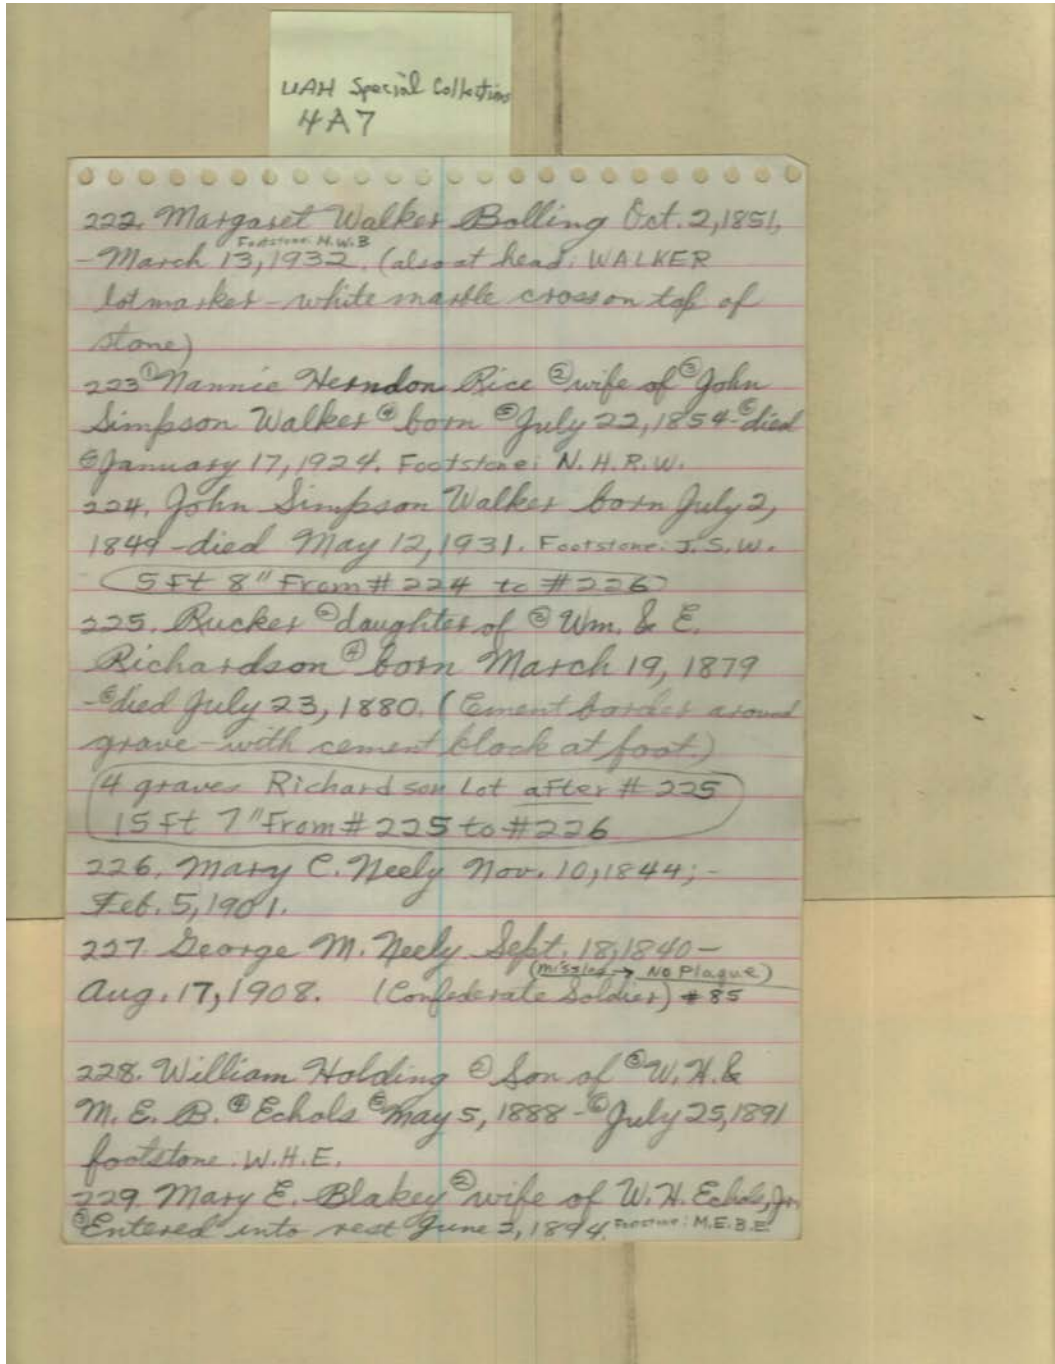 UAH Special Collections
4A7
222. Margaret Walker Bolling Oct. 2, 1851,
Footstone: M.W.B
- March 13, 1932. (also at head: WALKER
lotmarker - white marble cross on top of
stone)
223 ① Nannie Herndon Rice ② wife of ③ John
Simpson Walker ④ born ⑤ July 22, 1854 - ⑥ died
⑦ January 17, 1924. Footstone: N.H.R.W.
224. John Simpson Walker born July 2,
1849 - died May 12, 1931. Footstone: J.S.W.
5 ft 8" From # 224 to # 226
225. Rucker ② daughter of ③ Wm. & E.
Richardson ④ born March 19, 1879
- ⑥ died July 23, 1880. (Cement border around
grave - with cement block at foot.)
4 graves Richardson Lot after # 225
15 ft 7" From # 225 to # 226
226. Mary C. Neely Nov. 10, 1844; -
Feb. 5, 1901.
227. George M. Neely Sept. 18, 1840 -
(missing → No Plaque)
Aug. 17, 1908. (Confederate Soldier) # 85
228. William Holding ② Son of ③ W. H. &
M. E. B. ④ Echols ⑤ May 5, 1888 - ⑥ July 25, 1891
footstone: W.H.E.
229. Mary E. Blakey ② wife of W. H. Echols, Jr.
③ Entered into rest June 2, 1894. Footstone: M.E.B.E.